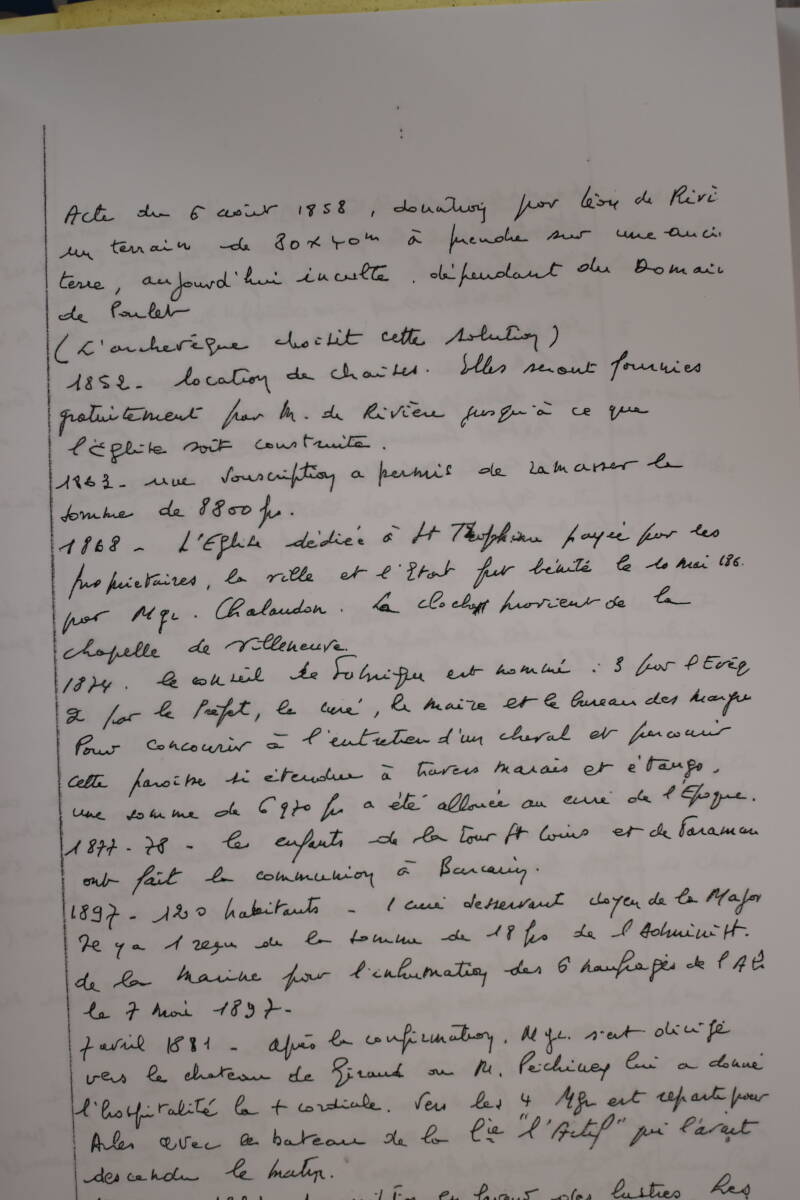 Acte du 6 août 1858, donation par Léon de Rivi
un terrain de 80 x 40m à prendre sur une anci
terre, aujourd'hui inculte. dépendant du Domain
de Paulet
(L'archevêque choisit cette solution)
1852 - location de chaises. Elles seront fournies
gratuitement par M. de Rivière jusqu'à ce que
l'Eglise soit construite.
1863 - une souscription a permis de ramasser la
somme de 8800 frs.
1868 - L'Eglise dédiée à St Trophime payée par les
propriétaires, la ville et l'Etat fut bénité le 10 mai 186
par Mgr. Chalandon. La cloche provient de la
chapelle de Villeneuve.
1874. le conseil de Fabrique est nommé : 3 par l'Evêq
2 par le Préfet, le curé, le maire et le bureau des margu
Pour concourir à l'entretien d'un cheval et parcourir
cette paroisse si étendue à travers marais et étangs,
une somme de 6970 frs a été allouée au curé de l'Epoque.
1877-78 - les enfants de la Tour St Louis et de Faraman
ont fait la communion à Barcarin.
1897 - 1200 habitants - 1 curé desservant doyen de la Major
Il y a 1 reçu de la somme de 18 frs de l'Administ.
de la Marine pour l'inhumation des 6 naufragés de l'
le 7 Mai 1897 -
7 avril 1881 - Après la confirmation, Mgr. s'est dirigé
vers le chateau de Giraud ou M. Péchiney lui a donné
l'hospitalité la + cordiale. Vers les 4 Mgr est repartu pour
Arles avec le bateau de la Cie "l'Actif" qui l'avait
descendu le matin.
en faveur des lustres. Les